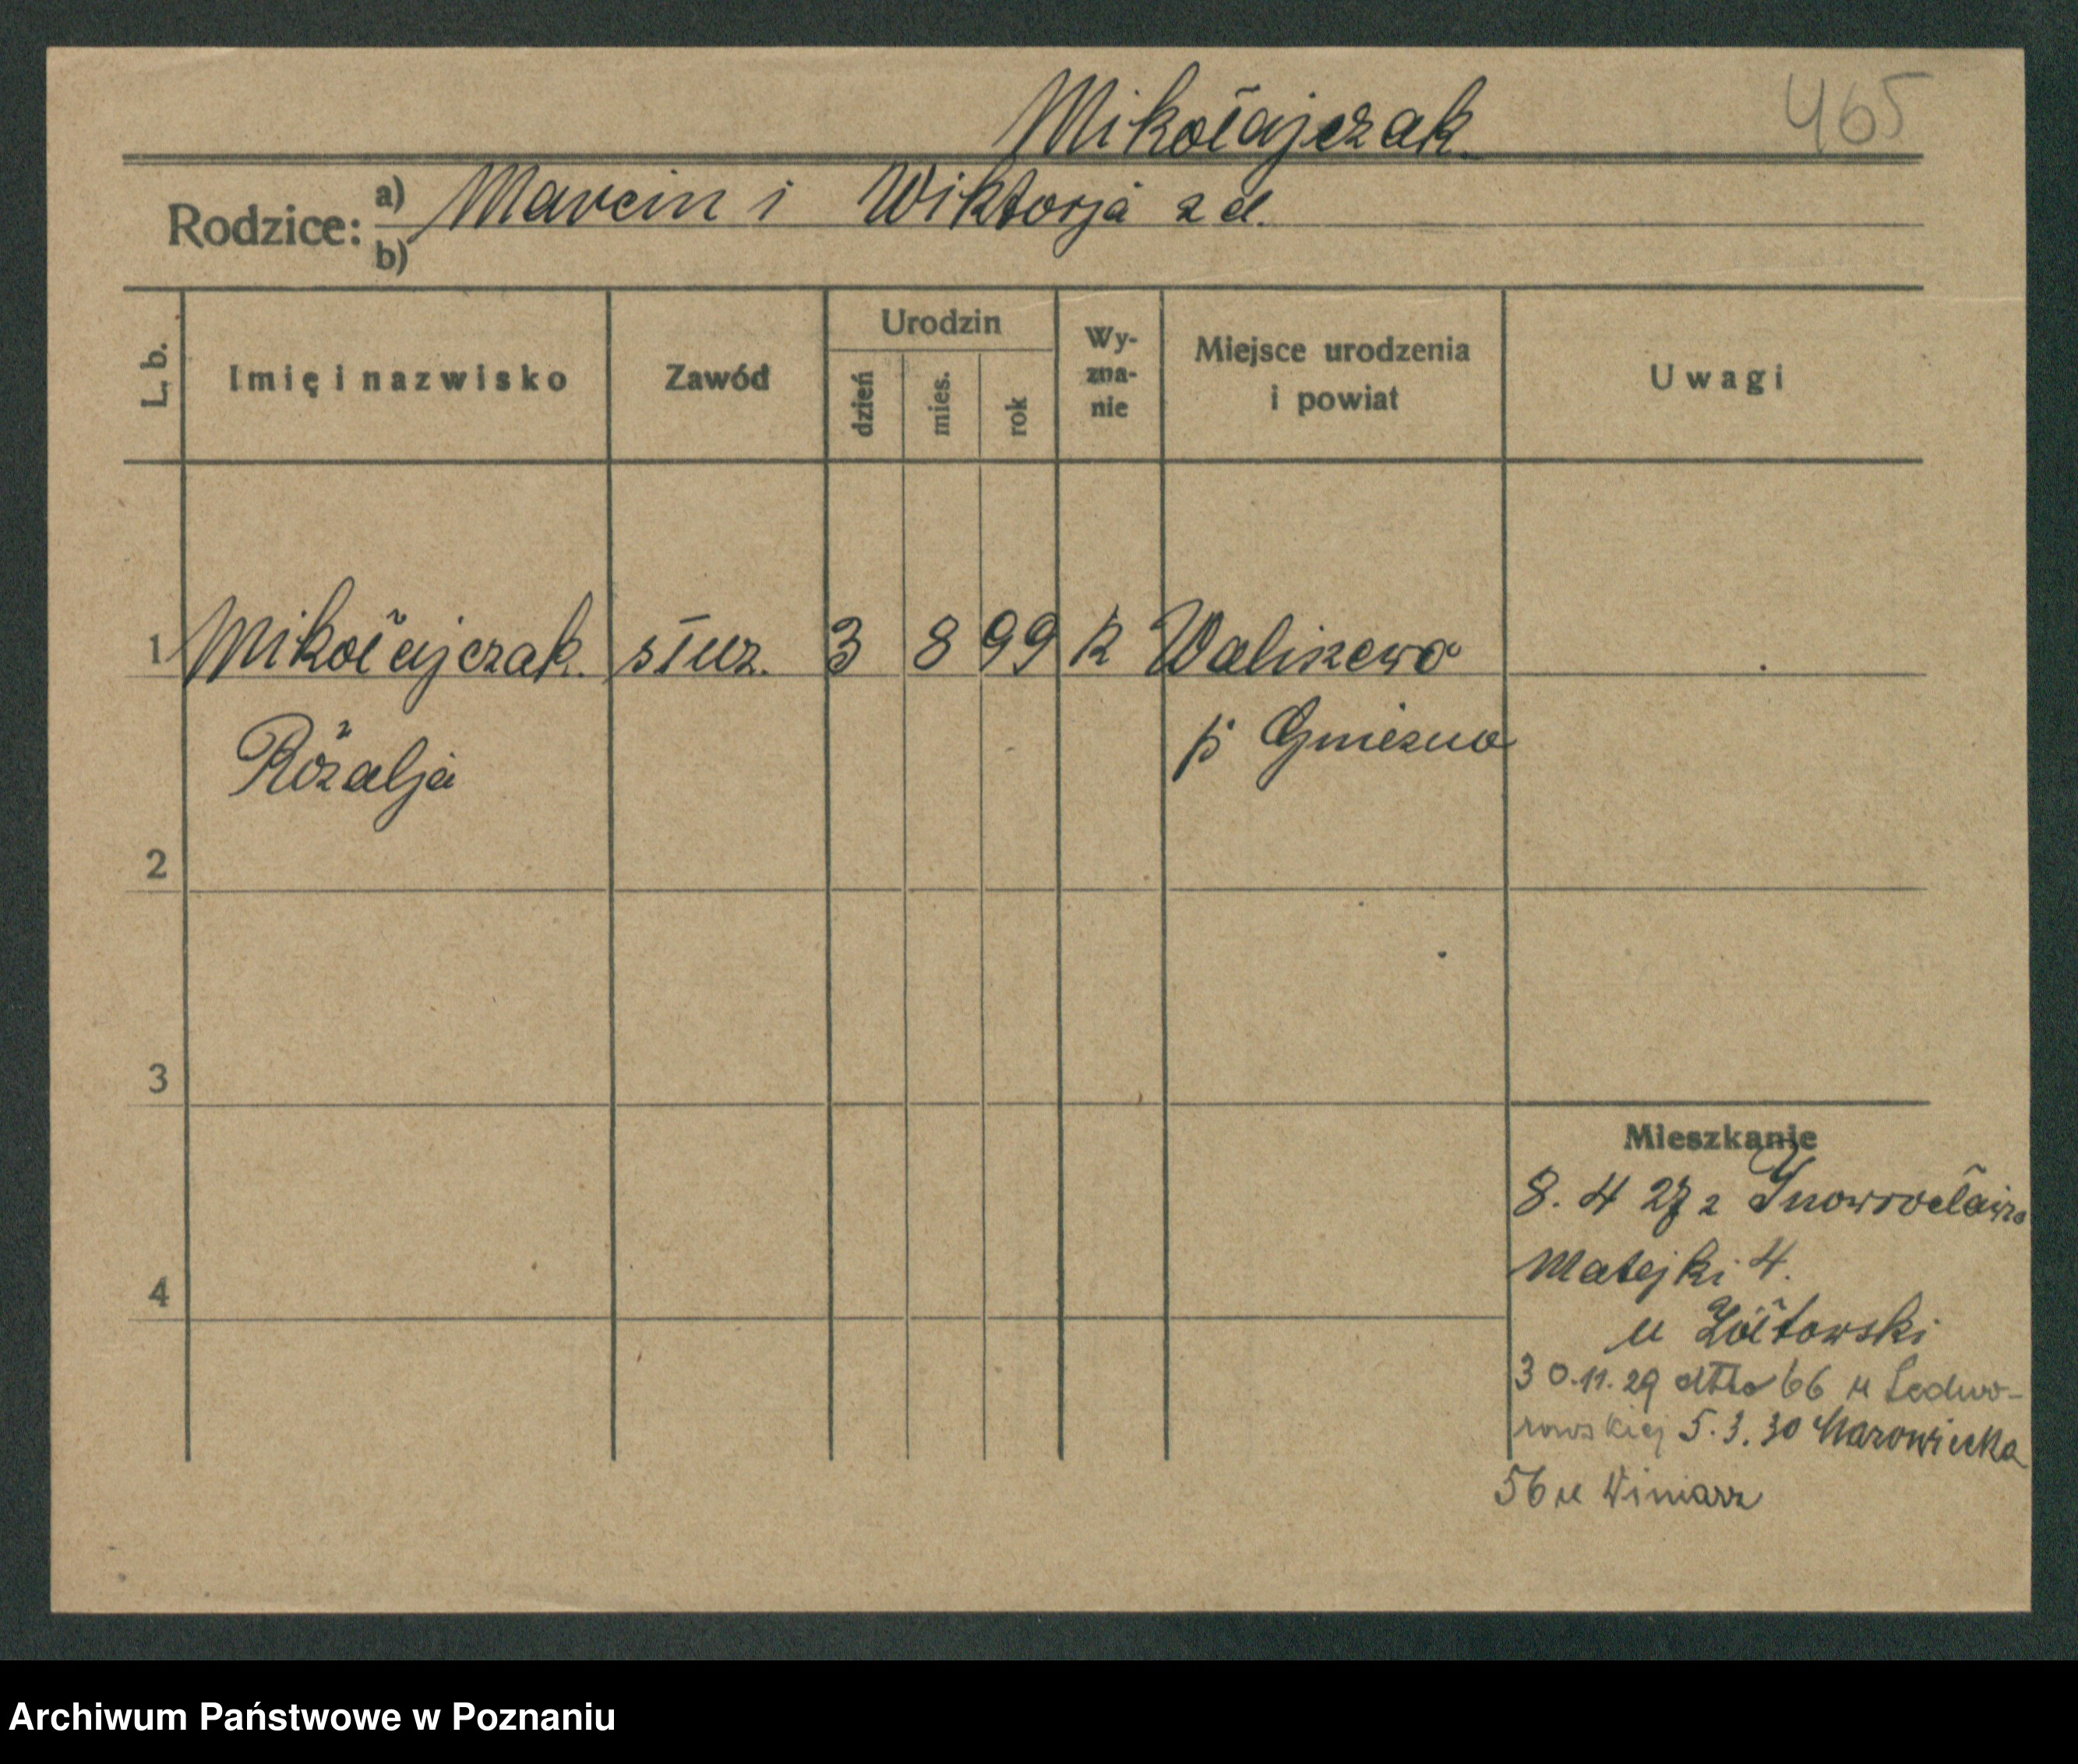 Mikołajczak.
465
Rodzice: a) Marcin i Wiktorja z d.
b)
L. b.
Imię i nazwisko
Zawód
Urodzin
dzień
mies.
rok
Wy-
zna-
nie
Miejsce urodzenia
i powiat
Uwagi
1 Mikołajczak. służ. 3 8 99 k Waliszewo
Rózalja
p. Gniezno
2
3
4
Mieszkanie
8. 4 27 z Inowrocławia
Matejki 4.
u Żółtowski
30.11.29 dtto 66 u
5.3.30 Mazowiecka
56 u Winiarz
Archiwum Państwowe w Poznaniu